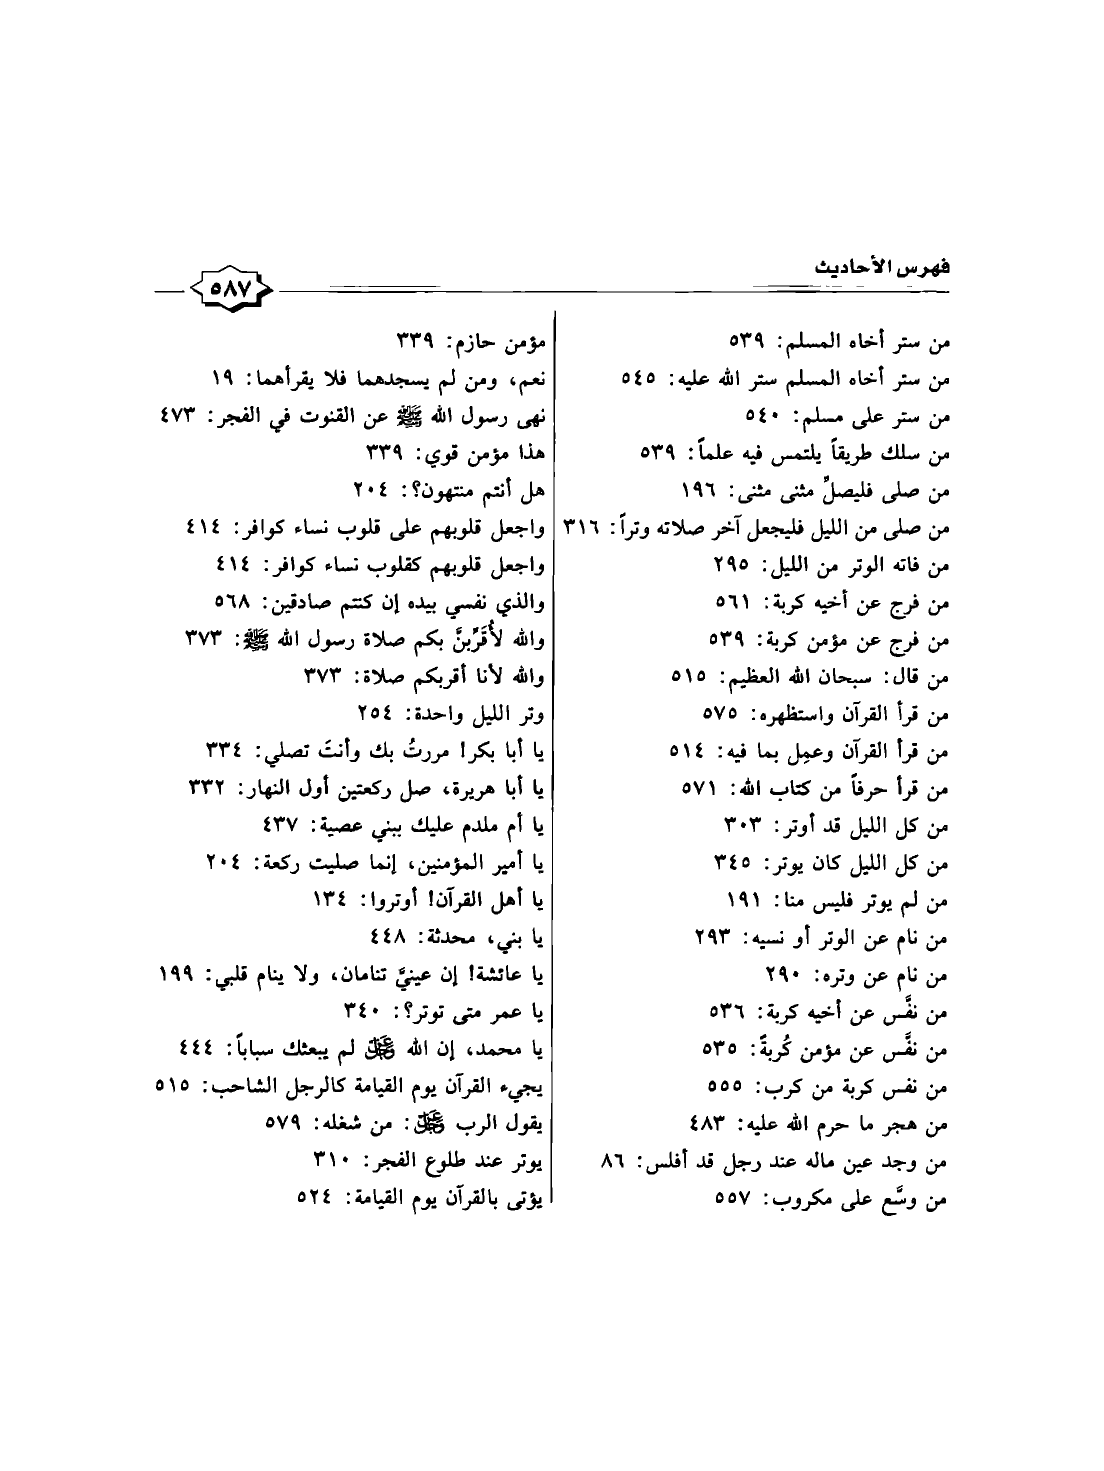 فهرس الأحاديث
٥٨٧
من ستر أخاه المسلم: ٥٣٩
من ستر أخاه المسلم ستر الله عليه: ٥٤٥
من ستر على مسلم: ٥٤٠
من سلك طريقاً يلتمس فيه علماً: ٥٣٩
من صلى فليصلِّ مثنى مثنى: ١٩٦
من صلى من الليل فليجعل آخر صلاته وتراً: ٣١٦
من فاته الوتر من الليل: ٢٩٥
من فرج عن أخيه كربة: ٥٦١
من فرج عن مؤمن كربة: ٥٣٩
من قال: سبحان الله العظيم: ٥١٥
من قرأ القرآن واستظهره: ٥٧٥
من قرأ القرآن وعمِل بما فيه: ٥١٤
من قرأ حرفاً من كتاب الله: ٥٧١
من كل الليل قد أوتر: ٣٠٣
من كل الليل كان يوتر: ٣٤٥
من لم يوتر فليس منا: ١٩١
من نام عن الوتر أو نسيه: ٢٩٣
من نام عن وتره: ٢٩٠
من نفَّس عن أخيه كربة: ٥٣٦
من نفَّس عن مؤمن كُربةً: ٥٣٥
من نفس كربة من كرب: ٥٥٥
من هجر ما حرم الله عليه: ٤٨٣
من وجد عين ماله عند رجل قد أفلس: ٨٦
من وسَّع على مكروب: ٥٥٧
مؤمن حازم: ٣٣٩
نعم، ومن لم يسجدهما فلا يقرأهما: ١٩
نهى رسول الله ﷺ عن القنوت في الفجر: ٤٧٣
هذا مؤمن قوي: ٣٣٩
هل أنتم منتهون؟: ٢٠٤
واجعل قلوبهم على قلوب نساء كوافر: ٤١٤
واجعل قلوبهم كقلوب نساء كوافر: ٤١٤
والذي نفسي بيده إن كنتم صادقين: ٥٦٨
والله لأُقَرِّبنَّ بكم صلاة رسول الله ﷺ: ٣٧٣
والله لأنا أقربكم صلاة: ٣٧٣
وتر الليل واحدة: ٢٥٤
يا أبا بكر! مررتُ بك وأنتَ تصلي: ٣٣٤
يا أبا هريرة، صل ركعتين أول النهار: ٣٣٢
يا أم ملدم عليك ببني عصية: ٤٣٧
يا أمير المؤمنين، إنما صليت ركعة: ٢٠٤
يا أهل القرآن! أوتروا: ١٣٤
يا بني، محدثة: ٤٤٨
يا عائشة! إن عينيَّ تنامان، ولا ينام قلبي: ١٩٩
يا عمر متى توتر؟: ٣٤٠
يا محمد، إن الله ﷻ لم يبعثك سباباً: ٤٤٤
يجيء القرآن يوم القيامة كالرجل الشاحب: ٥١٥
يقول الرب ﷻ: من شغله: ٥٧٩
يوتر عند طلوع الفجر: ٣١٠
يؤتى بالقرآن يوم القيامة: ٥٢٤